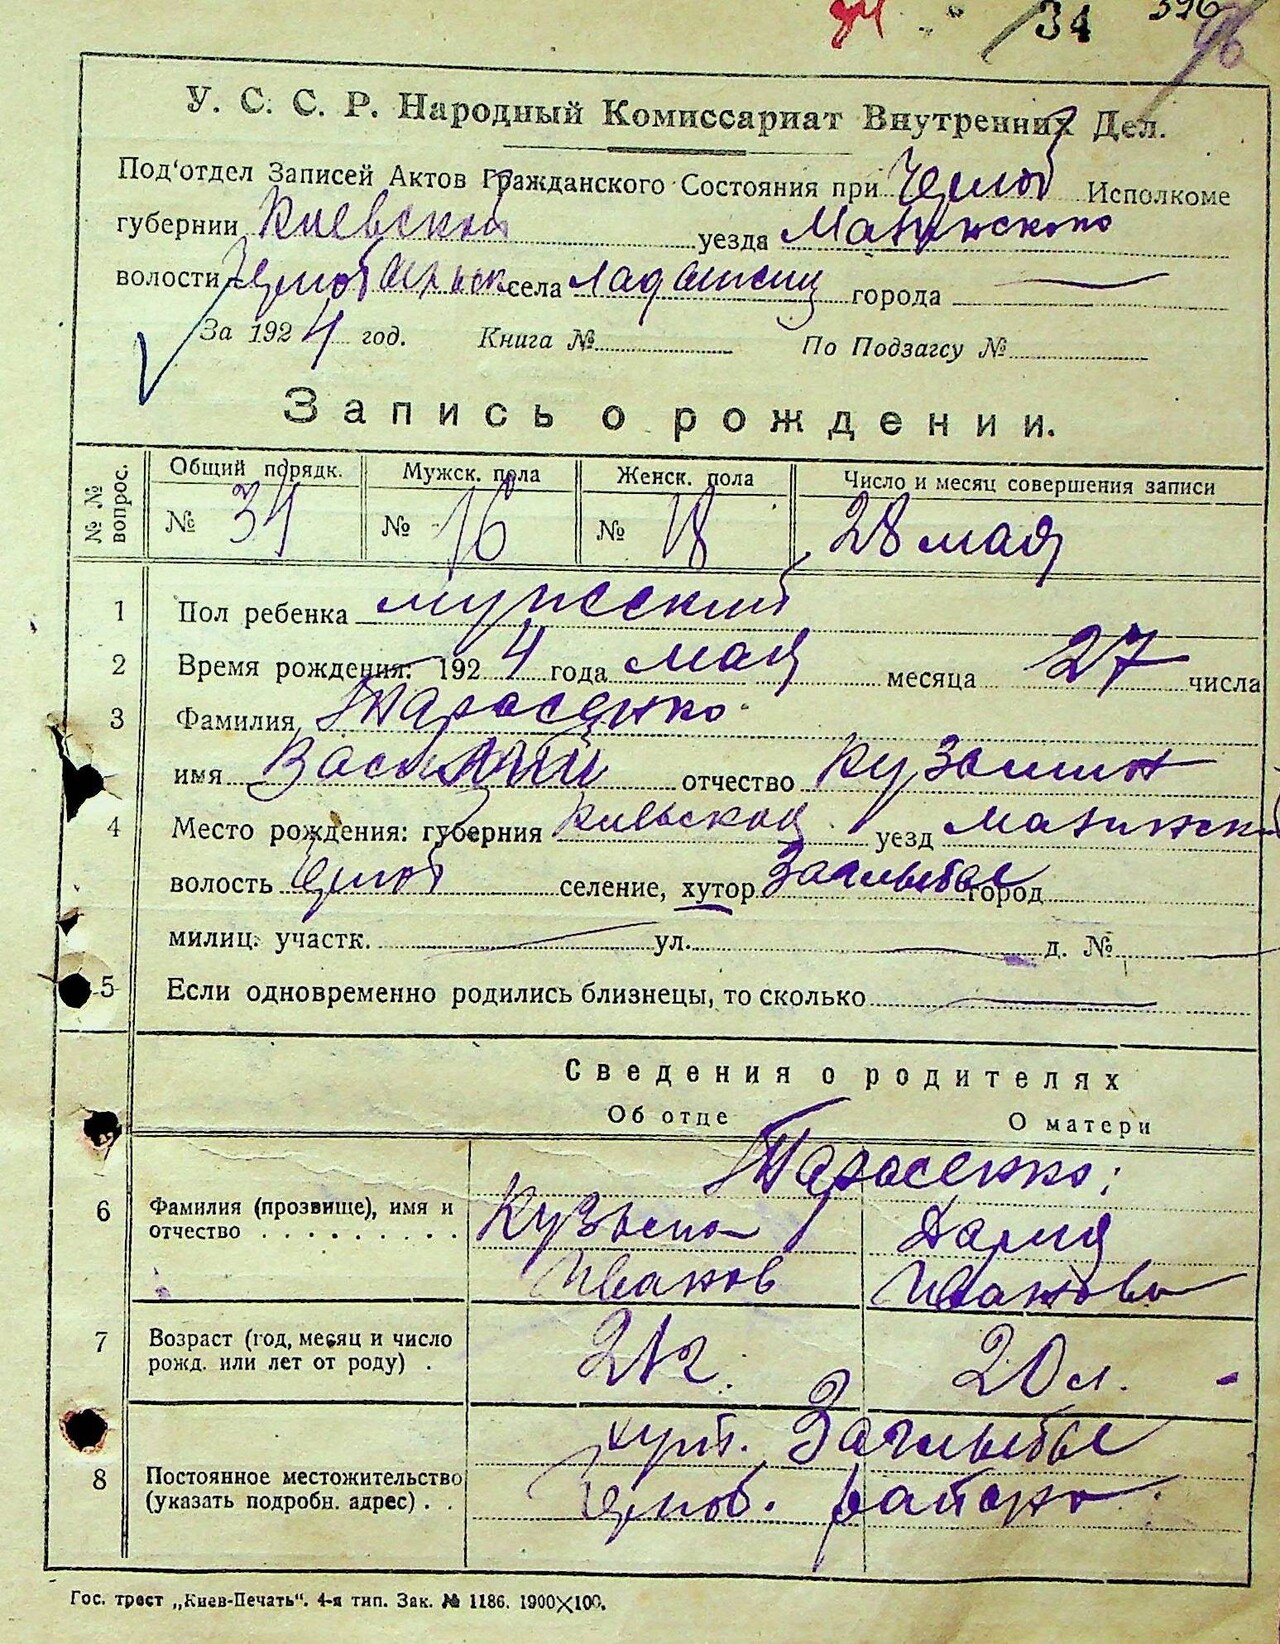 34 396
96
У. С. С. Р. Народный Комиссариат Внутренних Дел.
Под'отдел Записей Актов Гражданского Состояния при Исполкоме
губернии Киевской уезда
волости села города
За 1924 год. Книга № По Подзагсу №
Запись о рождении.
№ № вопрос. Общий порядк. Мужск. пола Женск. пола Число и месяц совершения записи
№ 34 № 16 № 18 28 мая
1 Пол ребенка мужеский
2 Время рождения: 1924 года мая месяца 27 числа
3 Фамилия Тарасенко
имя Василий отчество Кузьмин
4 Место рождения: губерния Киевской уезд
волость селение, хутор город
милиц. участк. ул. д. №
5 Если одновременно родились близнецы, то сколько
Сведения о родителях
Об отце О матери
Тарасенко:
6 Фамилия (прозвище), имя и отчество . . . . . . . . . Кузьма Дария
Иванов Иванова
7 Возраст (год, месяц и число рожд. или лет от роду) . 21 г. 20 л.
хут.
8 Постоянное местожительство (указать подробн. адрес) . . района
Гос. трест „Киев-Печать“. 4-я тип. Зак. № 1186. 1900×100.